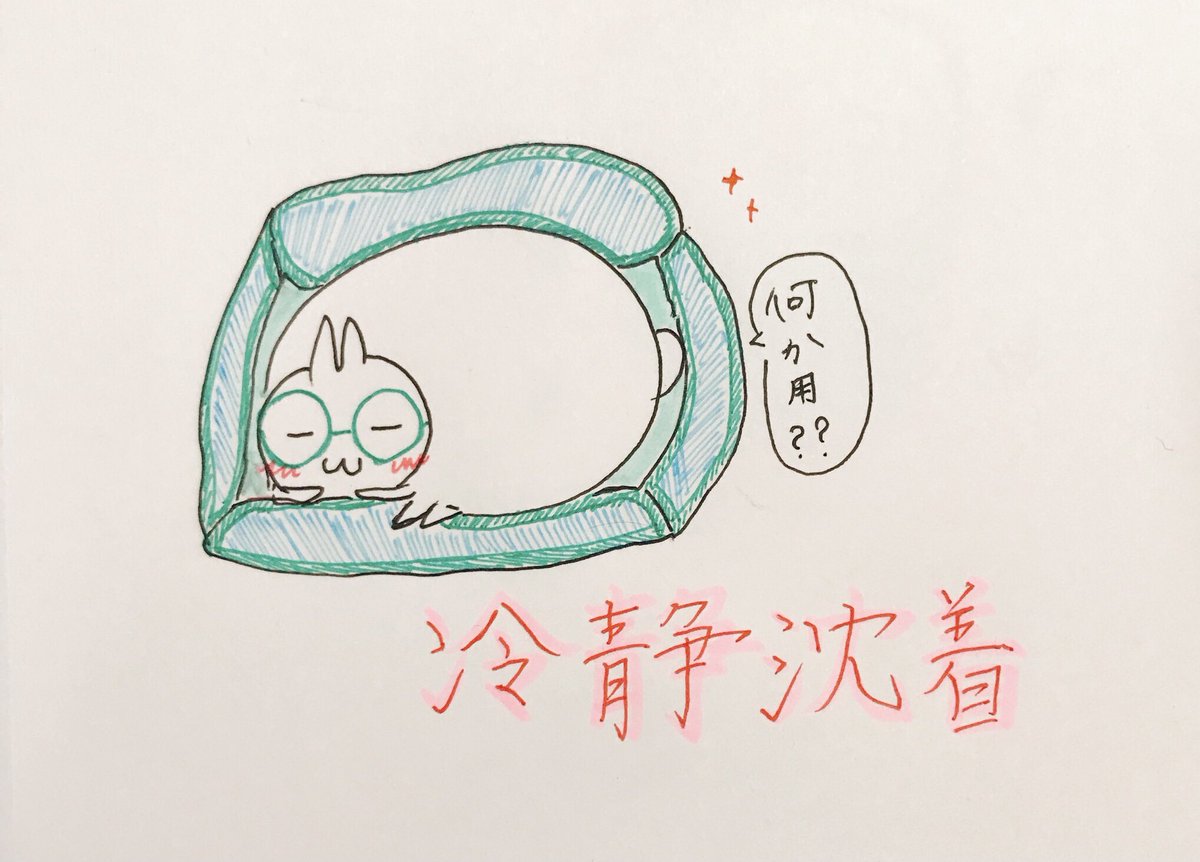 何か用??
冷静沈着